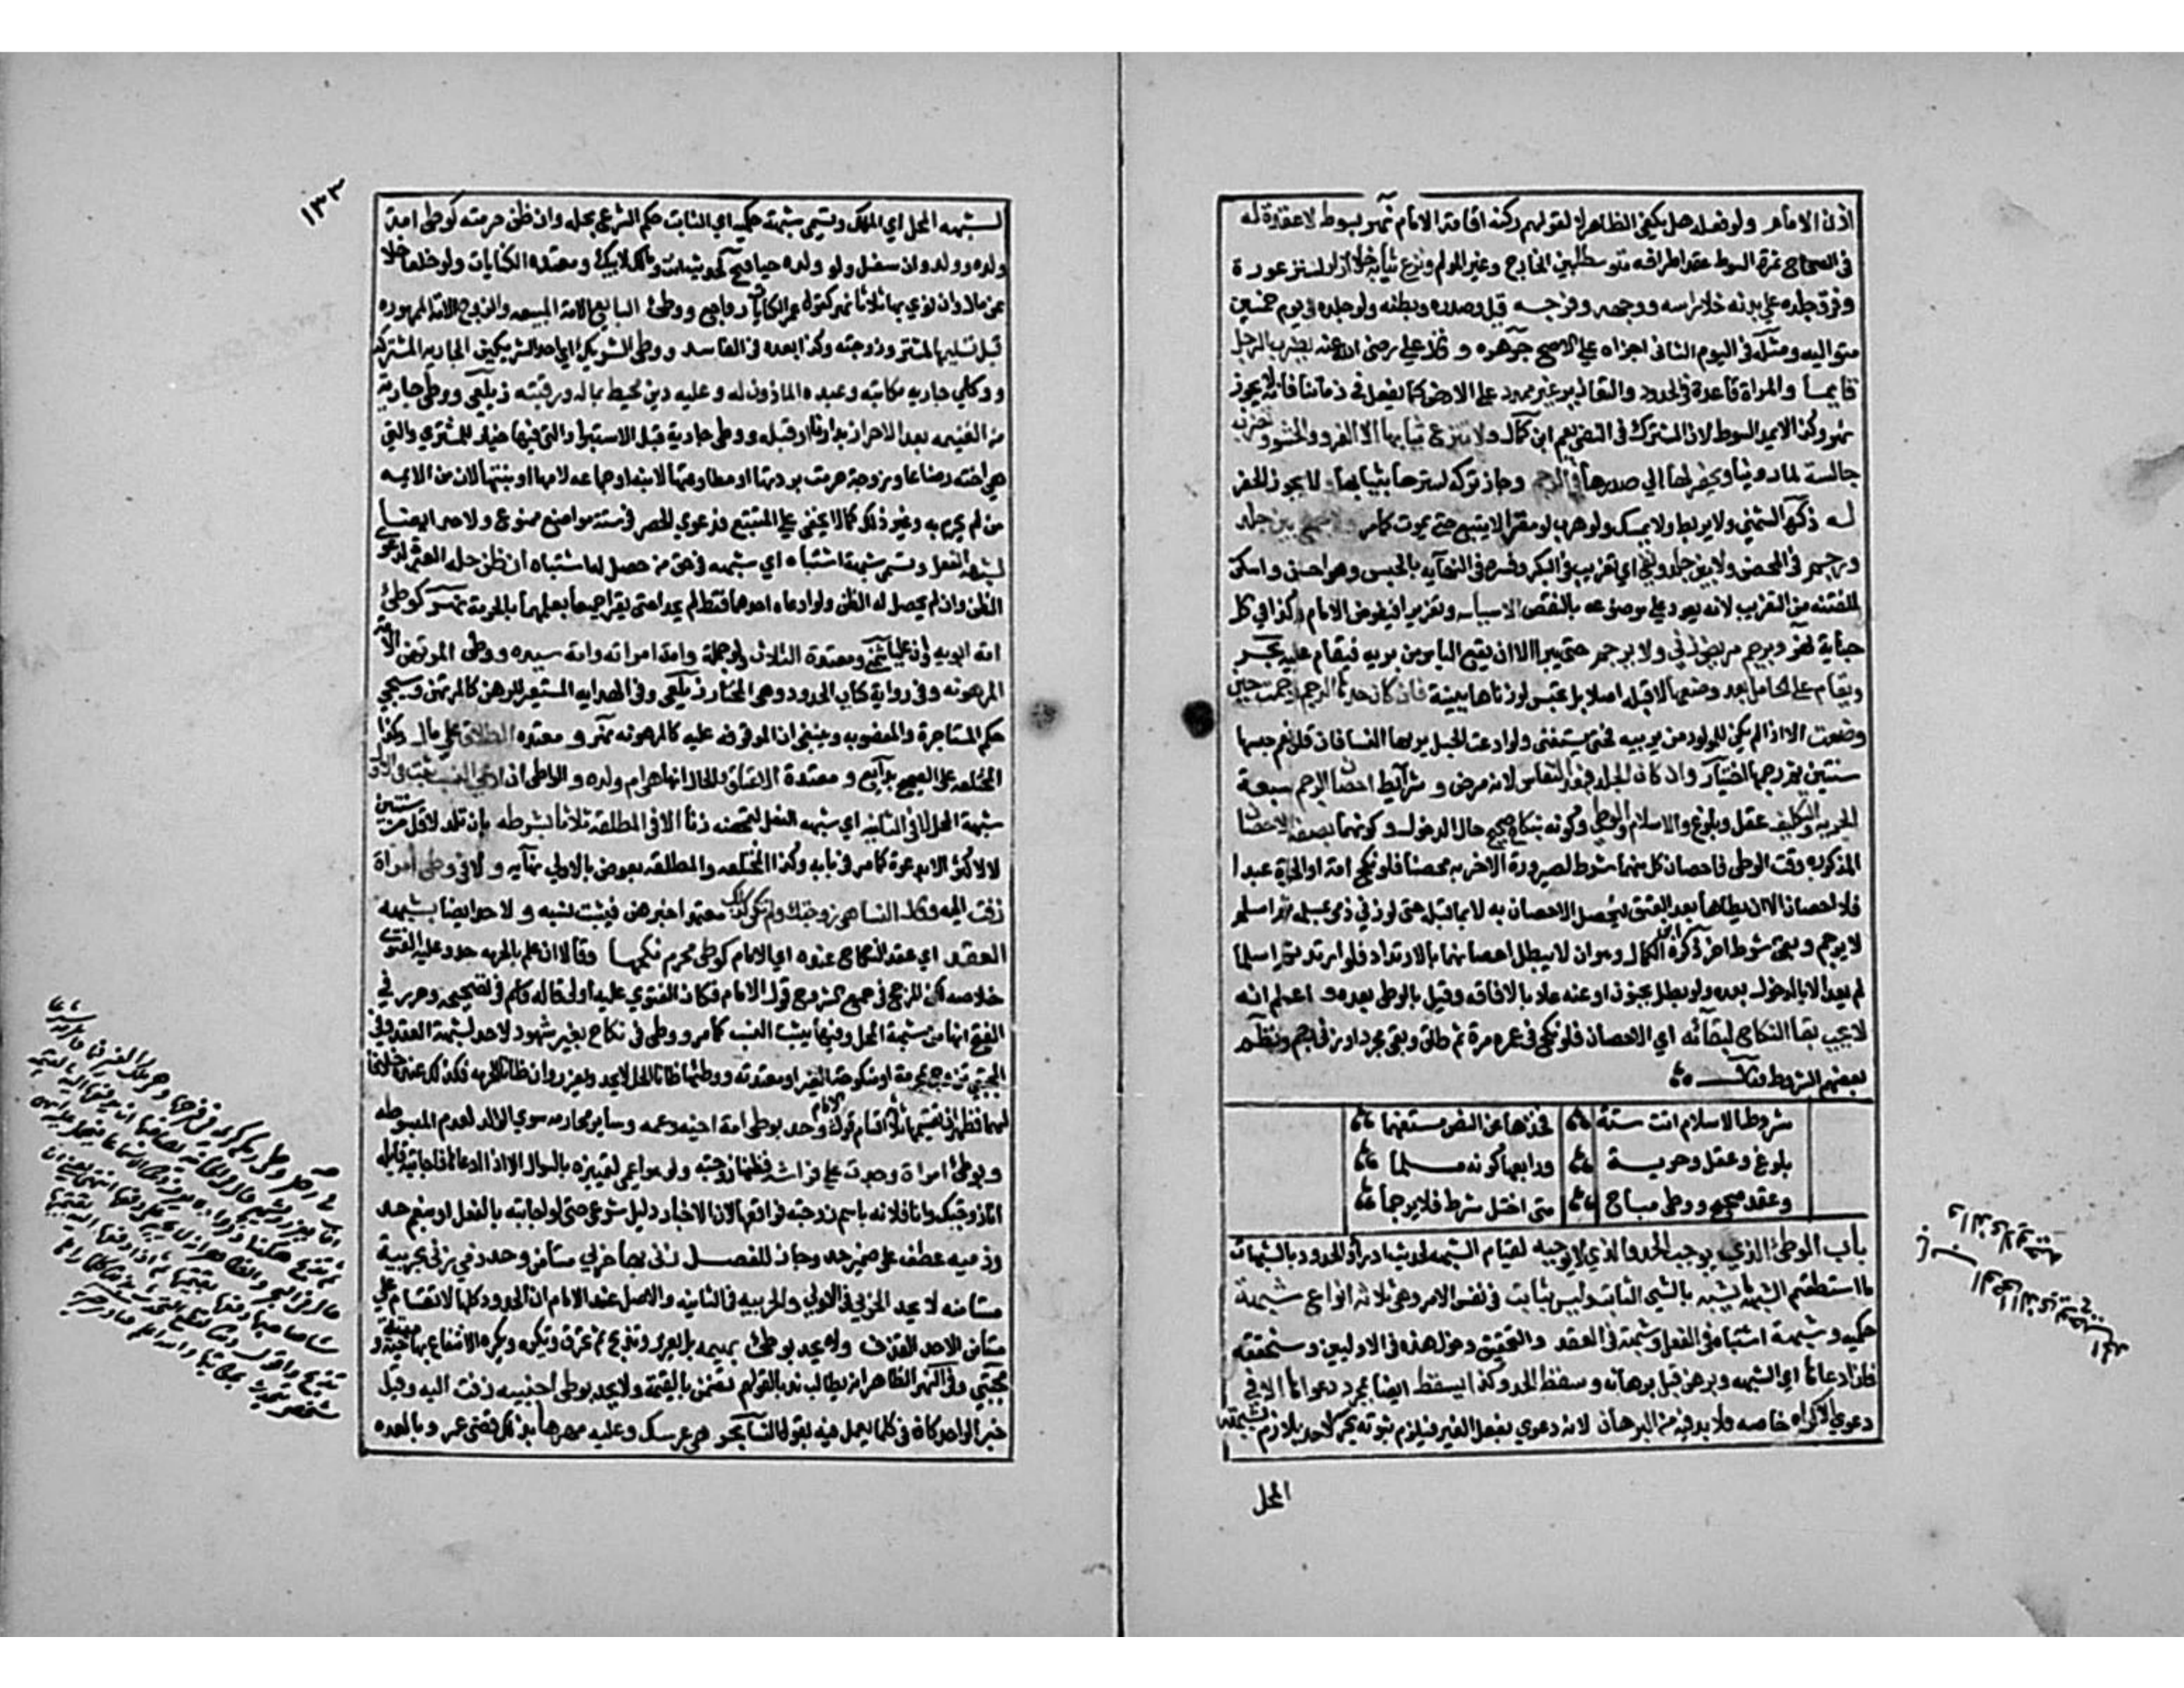 اذن الامام ولو فعله هل يكفي الظاهر لا لقولهم ركنه اقامة الامام نهر بسوط لا عقدة له
في الصحاح ثمرة السوط عقد اطرافه متوسطا بين الجارح وغير المولم ونزع ثيابه خلا ازار لستر عورة
وفرق جلده على بدنه خلا راسه ووجهه وفرجه قيل وصدره وبطنه ولو جلده في يوم خمسين
متواليه ومثله في اليوم الثاني اجزاه على الاصح جوهره وقال علي رضي الله عنه يضرب الرجل
قايما والمراة قاعدة في الحدود والتعازير غير ممدود على الارض كما يفعل في زماننا فانه لا يجوز
نهر وكذا لا يمد السوط لان المشترك في النفي يعم ابن كمال ولا تنزع ثيابها الا الفرو والحشو وتضرب
جالسة لما روينا ويحفر لها الى صدرها في الرجم وجاز تركه لسترها بثيابها لا يجوز الحفر
له ذكره الشمني ولا يربط ولا يمسك ولو هرب لو مقرا لا يتبع حتى يموت كما مر ولا جمع بين جلد
ورجم في المحصن ولا بين جلد ونفي اي تغريب في البكر وفسره في النهايه بالحبس وهو احسن واسكن
للفتنه من التغريب لانه يعود على موضوعه بالنقض الا سياسه وتعزيرا فيفوض للامام وكذا في كل
جناية نهر ويرجم مريض زني ولا يجلد حتى يبرا الا ان يقع الياس من بريه فيقام عليه بحر
ويقام على الحامل بعد وضعها لا قبله اصلا بل تحبس لو زناها ببينة فان كان حدها الرجم رجمت حين
وضعت الا اذا لم يكن للمولود من يربيه فحتى يستغني ولو ادعت الحبل يريها النسا فان قلن نعم حبسها
سنتين ثم رجمها اختيار وان كان الجلد فبعد النفاس لانه مرض وشرايط احصان الرجم سبعة
الحريه والتكليف عقل وبلوغ والاسلام والوطي وكونه بنكاح صحيح حال الدخول وكونهما بصفة الاحصان
المذكوره وقت الوطي فاحصان كل منهما شرط لصيرورة الاخر به محصنا فلو نكح امة او الحرة عبدا
فلا احصان الا ان يطاها بعد العتق فيحصل الاحصان به لا بما قبله حتى لو زني ذمي بمسلمه ثم اسلم
لا يرجم وبقي شرط اخر ذكره ابن الكمال وهو ان لا يبطل احصانهما بالارتداد فلو ارتدا ثم اسلما
لم يعد الا بالدخول بعده ولو بطل بجنون او عته عاد بالافاقه وقيل بالوطي بعده واعلم انه
لا يجب بقا النكاح لبقائه اي الاحصان فلو نكح في عمره مرة ثم طلق وبقي مجردا وزني رجم ونظم
بعضهم الشروط فقال
شروط الاسلام اتت ستة فخذها عن النص مستفهما
بلوغ وعقل وحرية ورابعها كونه مسلما
وعقد صحيح ووطي مباح متى اختل شرط فلا يرجما
باب الوطئ الذي يوجب الحد والذي لا يوجبه لقيام الشبهه لحديث ادراوا الحدود بالشبهات
ما استطعتم الشبهة ما يشبه بالشي الثابت وليس بثابت في نفس الامر وهي ثلاثة انواع شبهة
حكمية وشبهة اشتباه في الفعل وشبهة في العقد والتحقيق دخول هذه في الاوليين وسنحققه
فان ادعاها اي الشبهه وبرهن قبل برهانه وسقط الحد وكذا يسقط ايضا بمجرد دعواها الا في
دعوي الاكراه خاصه فلا بد فيه من البرهان لانه دعوي بفعل الغير فيلزم ثبوته بحر لا حد بلازم بشبهة
المحل
١٣٣
لشبهه المحل اي الملك وتسمي شبهة حكميه اي الثابت حكم الشرع بحله وان ظن حرمته كوطي امة
ولده وولد ولده وان سفل ولو ولده حيا فتح لحديث انت ومالك لابيك ومعتده الكنايات ولو خلعا خلا
عن مال وان نوي بها ثلاثا نهر كقول عمر الكنايات رواجع ووطئ البايع الامة المبيعه والزوج الامة الممهوره
قبل تسليمها لمشتر وزوجته وكذا بعده في الفاسد ووطي الشريك اي احد الشريكين الجاريه المشتركه
ووطئ جاريه مكاتبه وعبده الماذون له وعليه دين محيط بماله ورقبته زيلعي ووطي جارية
من الغنيمه بعد الاحراز بدارنا او قبله ووطي جارية قبل الاستبرا والتي فيها خيار للمشتري والتي
هي اخته رضاعا وزوجة حرمت بردتها او مطاوعتها لابنه او جماعه لامها او بنتها لان من الايمه
من لم يحرم به وغير ذلك كما لا يخفي على المتتبع فدعوي الحصر في ستة مواضع ممنوع ولا حد ايضا
لشبهة الفعل وتسمي شبهة اشتباه اي شبهه في حق من حصل له اشتباه ان ظن حله العبرة لدعوي
الظن وان لم يحصل له الظن ولو ادعاه احدهما فقط لم يحدا حتى يقرا جميعا بعلمهما بالحرمة نهر كوطئ
امة ابويه وان عليا شمني ومعتدة الثلاث ولو جملة وامة امراته وامة سيده ووطي المرتهن الامة
المرهونه وفي رواية كتاب الحدود وهو المختار زيلعي وفي الهدايه المستعير للرهن كالمرتهن وسيجي
حكم المستاجرة والمغصوبه وينبغي ان الموقوفه عليه كالمرهونه نهر ومعتده الطلاق على مال وكذا
المختلعه على الصحيح بدايع ومعتدة الاعتاق والحال انها ام ولده والواطي ان ادعي النسب يثبت في الاولي
شبهة المحل لا في الثانيه اي شبهه الفعل لتمحضه زنا الا في المطلقه ثلاثا بشرطه بان تلد لاقل من سنتين
لا لاكثر الا بدعوة كما مر في بابه وكذا المختلعه والمطلقه بعوض بالاولي نهايه والا في وطي امراة
زفت اليه وقلن النسا هي زوجتك ولم تكن كذلك معتمدا خبرهن فيثبت نسبه ولا حد ايضا بشبهه
العقد اي عقد النكاح عنده اي الامام كوطي محرم نكحها وقالا ان علم بالحرمه حد وعليه الفتوي
خلاصه لكن المرجح في جميع الشروح قول الامام فكان الفتوي عليه اولى قاله قاسم في تصحيحه وحرر في
الفتح انها من شبهة المحل وفيها يثبت النسب كما مر ووطي في نكاح بغير شهود لا حد لشبهة العقد وفي
المجتبي تزوج بمحرمه او منكوحة الغير او معتدته ووطئها ظانا الحل لا يحد ويعزر وان ظانا الحرمه فكذلك عنده خلافا
لهما فظهر ان تقسيمها ثلاثة اقسام قول الامام وحد بوطي امة اخيه وعمه وساير محارمه سوي الولاد لعدم البسوطه
وبوطئ امراة وجدت على فراشه فظنها زوجته ولو هو اعمى لتمييزه بالسوال الا اذا دعاها فاجابته قايله
انا زوجتك او انا فلانه باسم زوجته فواقعها لان الاخبار دليل شرعي حتى لو اجابته بالفعل او بنعم حد
وذميه عطف على ضمير حد وجاز للفصل زنى بها حربي مستامن وحد ذمي زنى بحربية
مستامنه لا يحد الحربي في الاولي والحربيه في الثانيه والاصل عند الامام ان الحدود كلها لا تقام على
مستامن الا حد القذف ولا يحد بوطئ بهيمه بل يعزر وتذبح ثم تحرق ويكره الانتفاع بها حية وميتة
مجتبي وفي النهر الظاهر انه يطالب ندبا لقولهم تضمن بالقيمة ولا يحد بوطي اجنبيه زفت اليه وقيل
خبر الواحد كاف في كلما يعمل فيه بقول النسا بحر هي عرسك وعليه مهرها بذلك قضي عمر وبالعده